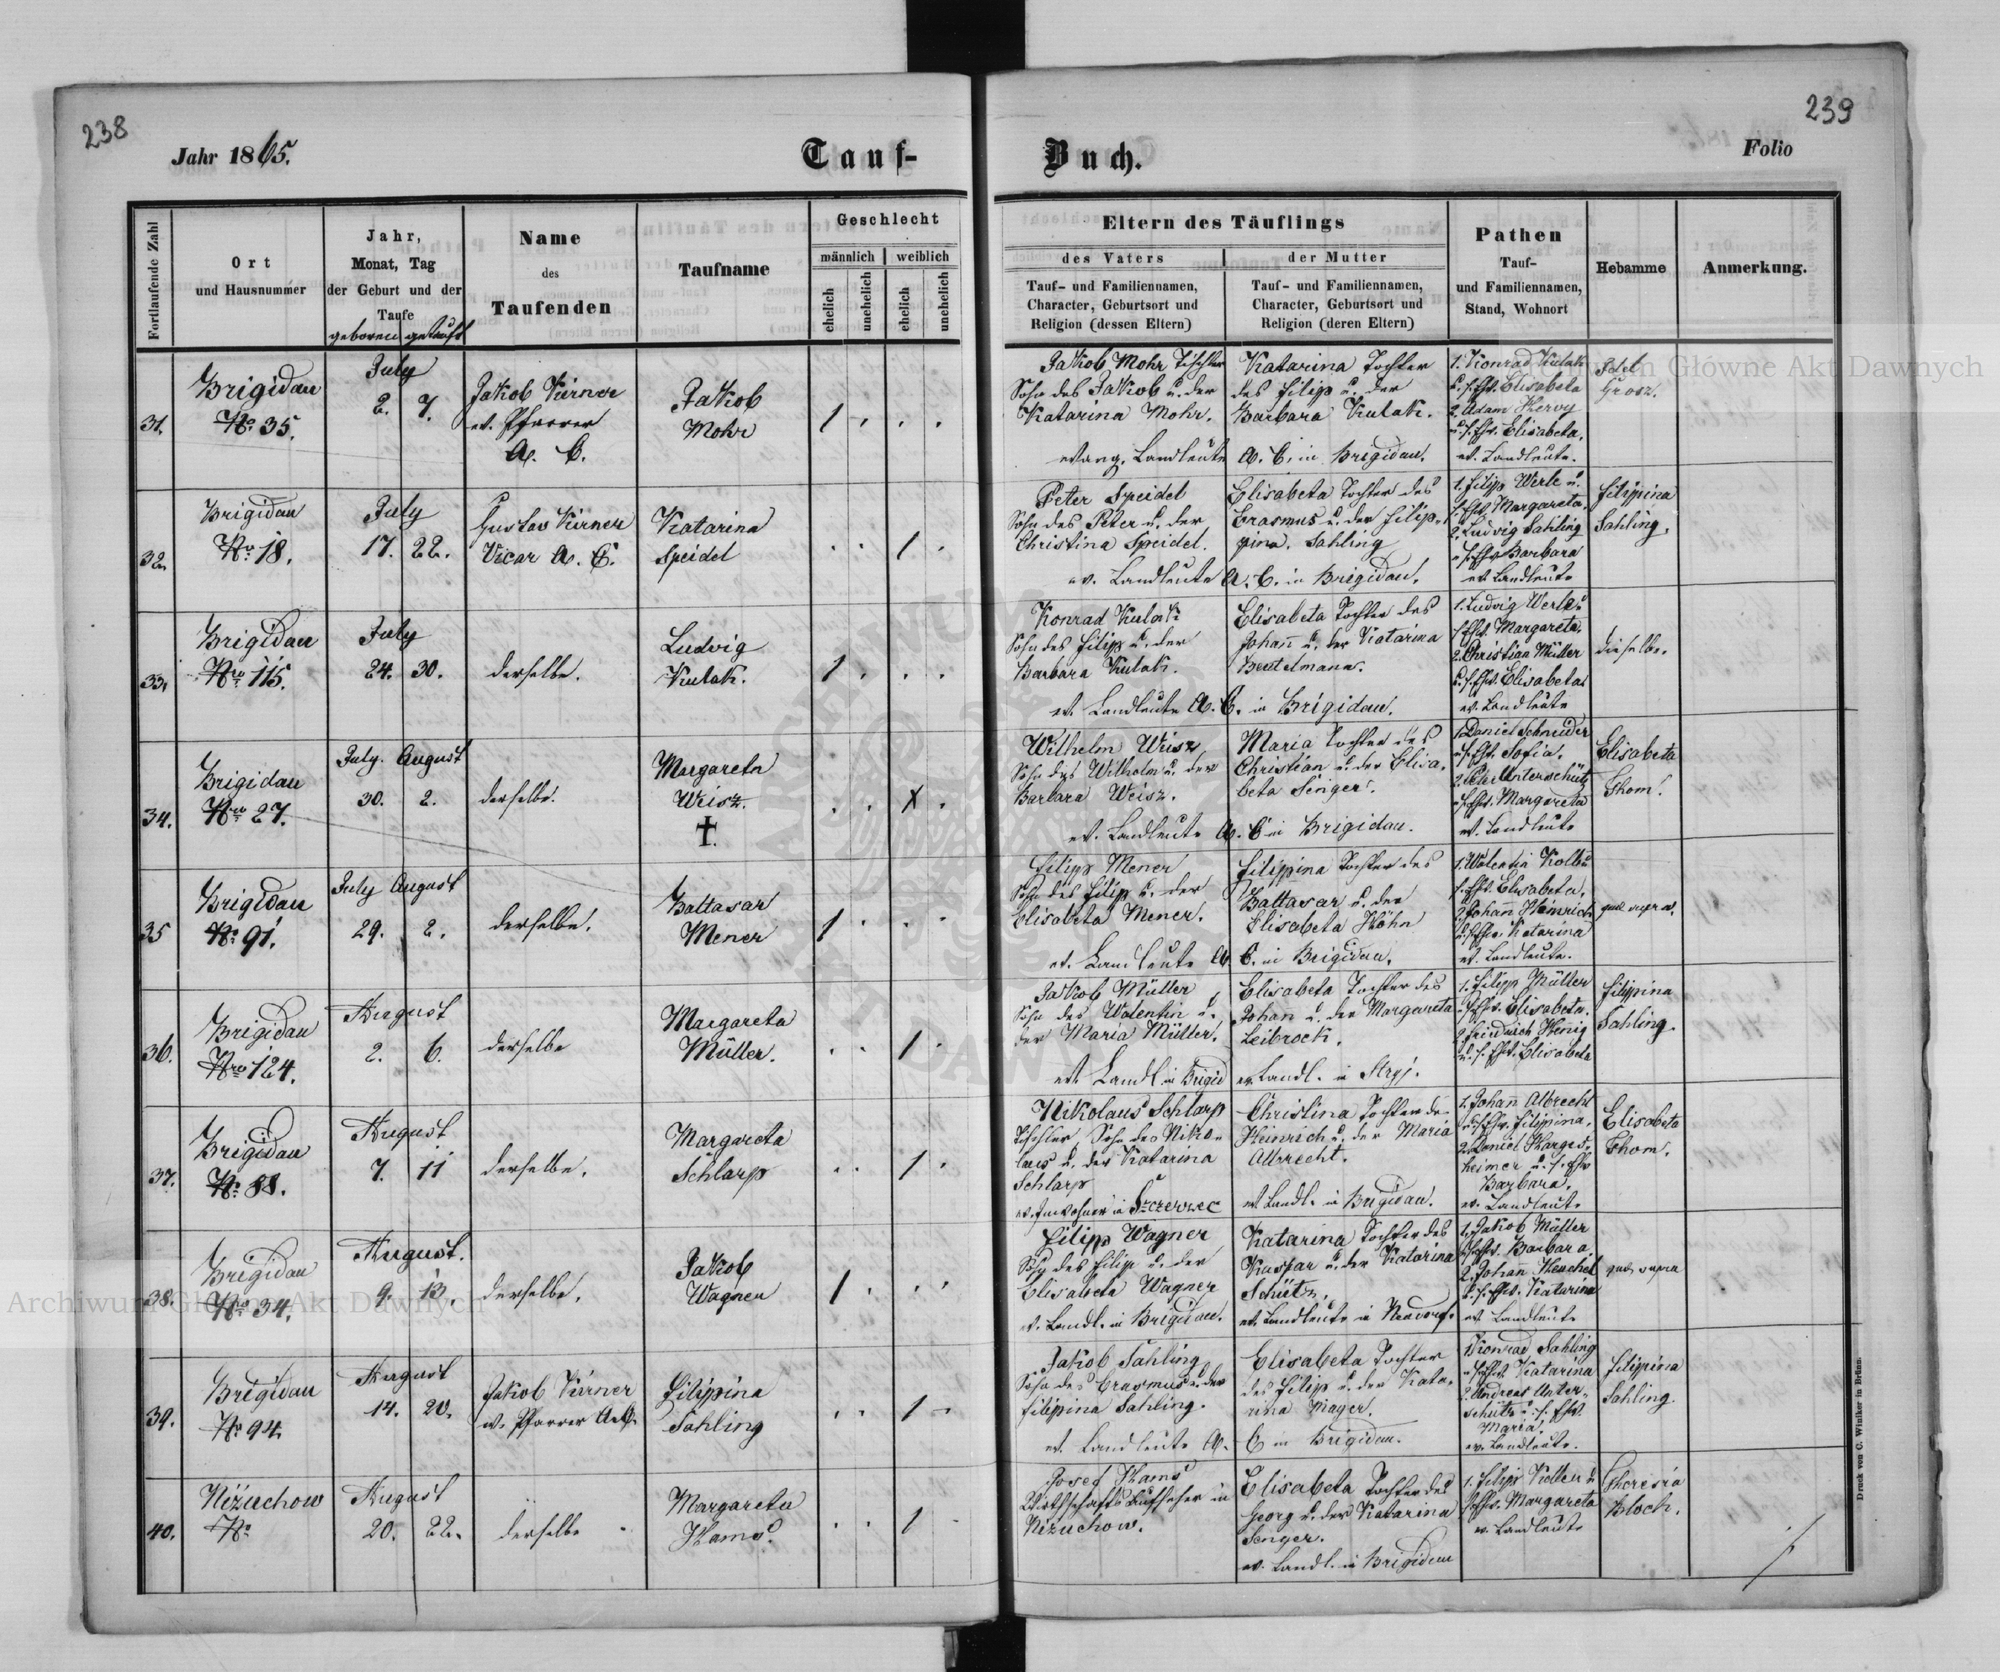 238
239
Jahr 1865.
Tauf-
Buch.
Folio
Fortlaufende Zahl
Ort
und Hausnummer
Jahr,
Monat, Tag
der Geburt und der
Taufe
geboren getauft
Name
des
Taufenden
Taufname
Geschlecht
männlich
weiblich
ehelich
unehelich
ehelich
unehelich
Eltern des Täuflings
des Vaters
der Mutter
Tauf- und Familiennamen,
Character, Geburtsort und
Religion (dessen Eltern)
Tauf- und Familiennamen,
Character, Geburtsort und
Religion (deren Eltern)
Pathen
Tauf-
und Familiennamen,
Stand, Wohnort
Hebamme
Anmerkung.
31.
Brigidau
No 35.
July
2. 7.
Jakob Kirner
ev. Pfarrer
A. C.
Jakob
Mohr
1
Jakob Mohr Tischler
Sohn des Jakob u. der
Katarina Mohr.
evang. Landleute
Katarina Tochter
des Filip u. der
Barbara Kulak.
A. C. in Brigidau.
1. Konrad Kulak
u. s. Ehw. Elisabeta
2. Adam Hervy
u. s. Ehw. Elisabeta.
ev. Landleute.
Grosz.
32.
Brigidau
Nro 18.
July
17. 22.
Gustav Kirner
Vicar A. C.
Katarina
Speidel
1
Peter Speidel
Sohn des Peter u. der
Christina Speidel.
ev. Landleute
Elisabeta Tochter des
Erasmus u. der Filip-
pina Sahling
A. C. in Brigidau.
1. Filipp Werle u.
s. Ehw. Margareta.
2. Ludvig Sahling
u. s. Ehw. Barbara
ev. Landleute
Filipina
Sahling.
33.
Brigidau
Nro 115.
July
24. 30.
derselbe.
Ludvig
Kulak.
1
Konrad Kulak
Sohn des Filip u. der
Barbara Kulak.
ev. Landleute A. C.
Elisabeta Tochter des
Johann u. der Katarina
Beutelmann.
in Brigidau.
1. Ludvig Werle u
s. Ehw. Margareta.
2. Christian Müller
u. s. Ehw. Elisabeta.
ev. Landleute
dieselbe.
34.
Brigidau
Nro 27.
July. August
30. 2.
derselbe.
Margareta
Weisz.
†
Wilhelm Weisz
Sohn des Wilhelm u. der
Barbara Weisz.
ev. Landleute
Maria Tochter des
Christian u. der Elisa-
beta Senger.
A. C. in Brigidau.
1. Daniel Schneider
u. s. Ehw. Sofia.
2. Peter Unterschütz
u. s. Ehw. Margareta
ev. Landleute
Elisabeta
Thom.
35
Brigidau
No 91.
July August
29. 2.
derselbe.
Baltasar
Mener
1
Filipp Mener
Sohn des Filip u. der
Elisabeta Mener.
ev. Landleute A.
Filippina Tochter des
Baltasar u. der
Elisabeta Höhn
C. in Brigidau.
1. Valentin Kolb u
s. Ehw. Elisabeta.
2. Johann Heinrich
u. s. Ehw. Katarina
ev. Landleute.
quae supra.
36.
Brigidau
Nro 124.
August
2. 6.
derselbe
Margareta
Müller.
1
Jakob Müller
Sohn des Valentin u.
der Maria Müller.
ev. Landl. in Brigid
Elisabeta Tochter des
Johan u. der Margareta
Leibrock.
ev. Landl. in Stryj.
1. Filipp Müller
u. s. Ehw. Elisabeta.
2. Friedrich Henig
u. s. Ehw. Elisabeta
Filipina
Sahling.
37.
Brigidau
No 88.
August.
7. 11
derselbe.
Margareta
Schlarp
1
Nikolaus Schlarp
Tischler Sohn des Niko-
laus u. der Katarina
Schlarp
ev. Inwohner in Szczerzec
Christina Tochter des
Heinrich u. der Maria
Albrecht.
ev. Landl. in Brigidau.
1. Johann Albrecht
u. s. Ehw. Filipina.
2. Daniel Harges-
heimer u. s. Ehw
Barbara.
ev. Landleute
Elisabeta
Thom.
38.
Brigidau
Nro 34.
August.
9. 13.
derselbe.
Jakob
Wagner
1
Filipp Wagner
Sohn des Filip u. der
Elisabeta Wagner
ev. Landl. in Brigidau.
Katarina Tochter des
Kaspar u. der Katarina
Schütz.
ev. Landleute in Neudorf.
1. Jakob Müller
u. s. Ehw. Barbara.
2. Johann Heuchel
u. s. Ehw. Katarina
ev. Landleute
quae supra
39.
Brigidau
No 94.
August
14. 20.
Jakob Kirner
ev. Pfarrer A. C.
Filipina
Sahling
1
Jakob Sahling
Sohn des Erasmus u. der
Filipina Sahling.
ev. Landleute A.
Elisabeta Tochter
des Filip u. der Kata-
rina Mayer.
C in Brigidau.
1. Konrad Sahling
u. s. Ehw. Katarina
2. Andreas Unter-
schütz u. s. Ehw.
Maria.
ev. Landleute.
Filipina
Sahling.
40.
Niżuchow
No
August
20. 22.
derselbe
Margareta
Hams.
1
Josef Hams
Wirthschafts Aufseher in
Niżuchow.
Elisabeta Tochter des
Georg u. der Katarina
Senger.
ev. Landl. in Brigidau
1. Filipp Kolb u
s. Ehw. Margareta
ev. Landleute
Theresia
Bloch.
Druck von C. Winiker in Brünn.
Archiwum Główne Akt Dawnych
Archiwum Główne Akt Dawnych